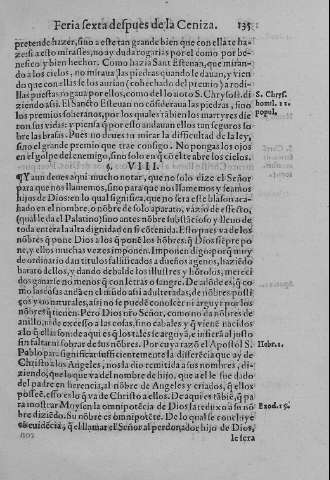 Feria sexta despues de la Ceniza. 135
pretende hazer, sino a este tan grande bien que con ella te ha-
zes: si a esto mirasses, no ay duda rogarias por el como por be-
nefico y bien hechor. Como hazia Sant Esteuan, que miran-
do a los cielos, no miraua las piedras quando le dauan, y vien
do que con ellas se los aurian (cohechado del premio) arodi-
llas puestas rogaua por ellos, como del lo noto S. Chrysost. di
ziendo assi. El Sancto Esteuan no cōsideraua las piedras, sino
los premios soberanos, por los quales tābien los martyres die
ron sus vidas: y piensa q̄ por esso andauan ellos tan seguros so
bre las brasas. Pues no deues tu mirar la difficultad de la ley,
sino el grande premio que trae consigo. No pongas los ojos
en el golpe del enemigo, sino solo en q̄ cō el te abre los cielos.
S. Chrys.
homil.
popul.
§. VIII.
Y aun deues aqui mucho notar, que no solo dize el Señor
para que nos llamemos, sino para que nos llamemos y seamos
hijos de Dios: en lo qual significa, que no sera este blason aca-
bado en el nombre, o nōbre de solo aparato, vazio de efecto,
(qual le da el Palatino) sino antes nōbre substācioso y lleno de
toda entera la alta dignidad en si cōtenida. Esto pues va de los
nōbres q̄ pone Dios a los q̄ pone los hōbres, q̄ Dios siēpre po
ne, y ellos muchas vezes imponen. Imponen digo porq̄ muy
de ordinario dan titulos falsificados a dueños agenos, haziēdo
barato dellos, y dando debalde los illustres y hōrosos, mereci
dos ganar lo no menos q̄ con letras o sangre. De alōde es, q̄ co
mo las cosas andā en el mūdo assi adulteradas, de nōbres posti
ços y no naturales, assi no se puede conocer ni arguyr por los
nōbres q̄ tienen. Pero Dios nro Señor, como no da nōbres de
anillo, ni de excesso a las cosas, sino cabales y q̄ vienē nacidos
a lo q̄ ellas son: de aqui es q̄ los tales se arguyē, e infierē al justo
sin faltar ni sobrar de sus nōbres. Por cuya razō el Apostol S.
Pablo para significar sufficientemente la differēcia que ay de
Christo a los Angeles, nos la dio remitida a sus nombres, di-
ziendo, que lo que va del nombre de hijo, que a el le fue dado
del padre en herencia, al nōbre de Angeles y criados, q̄ ellos
possee, esso es lo q̄ va de Christo a ellos. De aqui es tābiē, q̄ pa
ra mostrar Moysen la omnipotēcia de Dios la reduxo a su nō
bre diziēdo: Su nōbre es omnipotente. De lo qual se concluye
cō euidēcia, q̄ el llamar el Señor al perdonador hijo de Dios,
Hebr. 1.
Exod. 15.
no 2
le sera